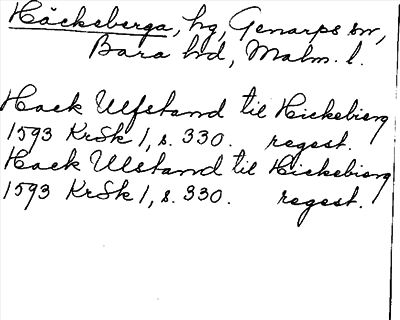 Häckeberga, hg, Genarps sn,
Bara hd, Malm. l.
Hack Ulfstand til Hickebierg
1593 KrSk 1, s. 330. regest.
Hack Ulstand til Hickebierg
1593 KrSk 1, s. 330. regest.